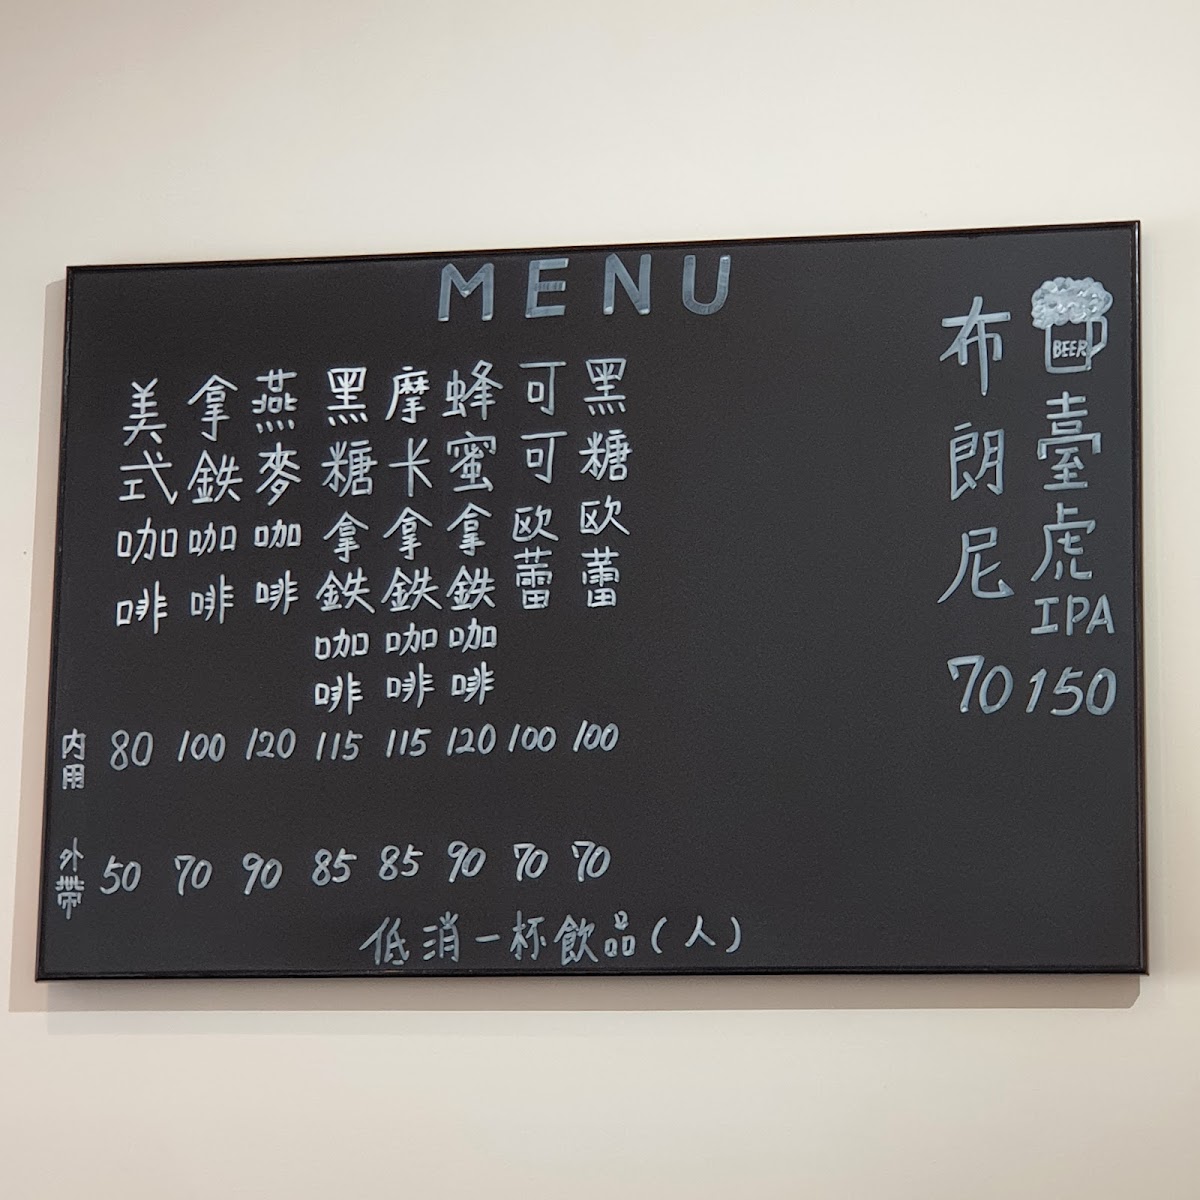 MENU
美式咖啡
拿鉄咖啡
燕麥咖啡
黑糖拿鉄咖啡
摩卡拿鉄咖啡
蜂蜜拿鉄咖啡
可可欧蕾
黑糖欧蕾
布朗尼 70
BEER
臺虎IPA 150
内用 80 100 120 115 115 120 100 100
外帶 50 70 90 85 85 90 70 70
低消一杯飲品(人)